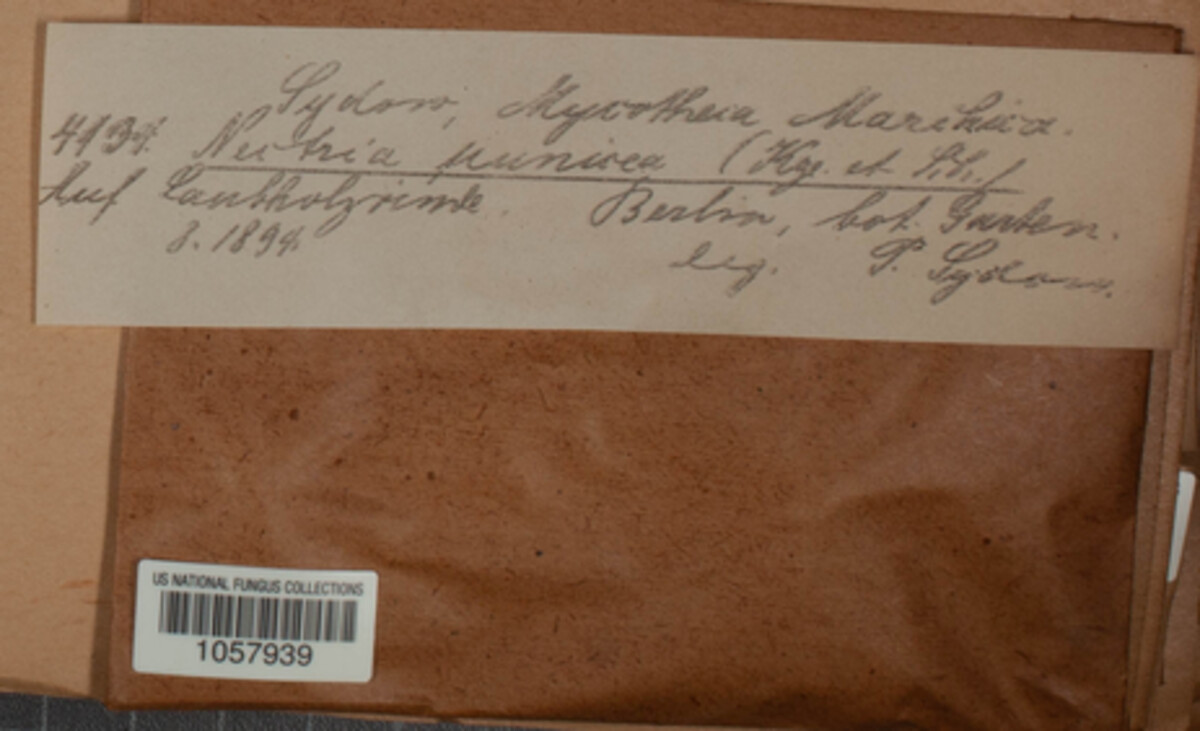 Sydow, Mycotheca Marchica.
4134. Nectria punicea (Kze. et Sch.)
Auf Laubholzrinde. Berlin, bot. Garten.
8. 1894. leg. P. Sydow.
US NATIONAL FUNGUS COLLECTIONS
1057939